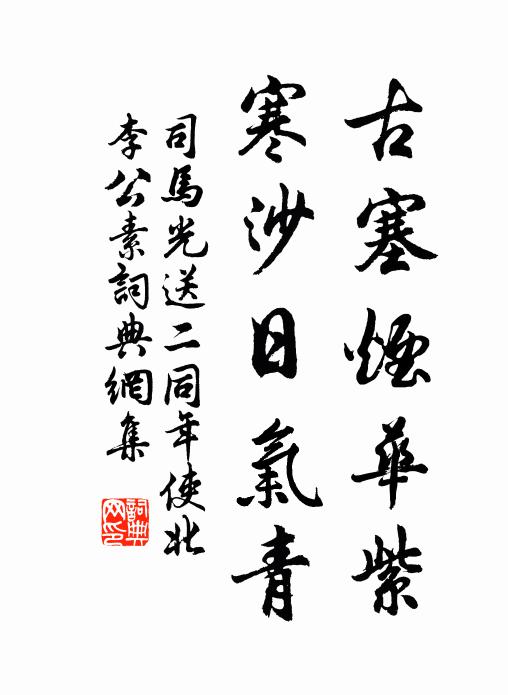 古塞煙華紫
寒沙日氣青
司馬光送二同年使北
李公素詞典網集
詞典網印